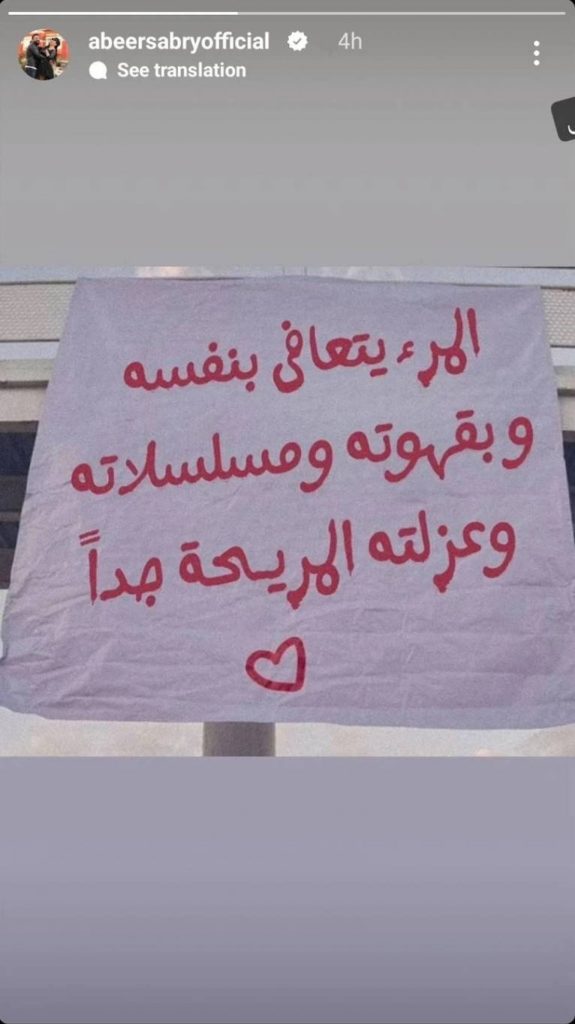 abeersabryofficial 4h
See translation
المرء يتعافى بنفسه
وبقهوته ومسلسلاته
وعزلته المريحة جداً